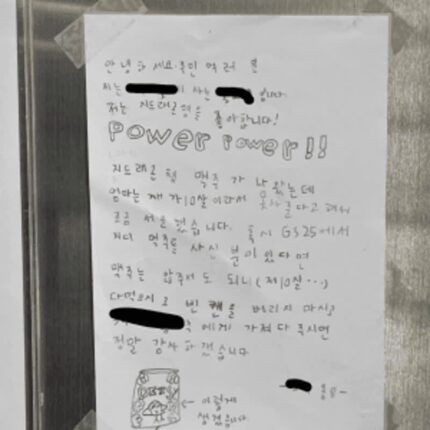 안녕하세요. 주민 여러분
저는 사는 입니다.
저는 지드래곤형을 좋아합니다!
POWER POWER!!
지드래곤 형 맥주가 나왔는데
엄마는 제가 10살이라서 못사준다고 해서
조금 서운했습니다. 혹시 GS25에서
지디 맥주를 사신 분이 있다면
맥주는 안주셔도 되니(제10살…)
다먹으시고 빈 캔을 버리지 마시고
에게 가져다 주시면
정말 감사하겠습니다
← 이렇게
생겼습니다.